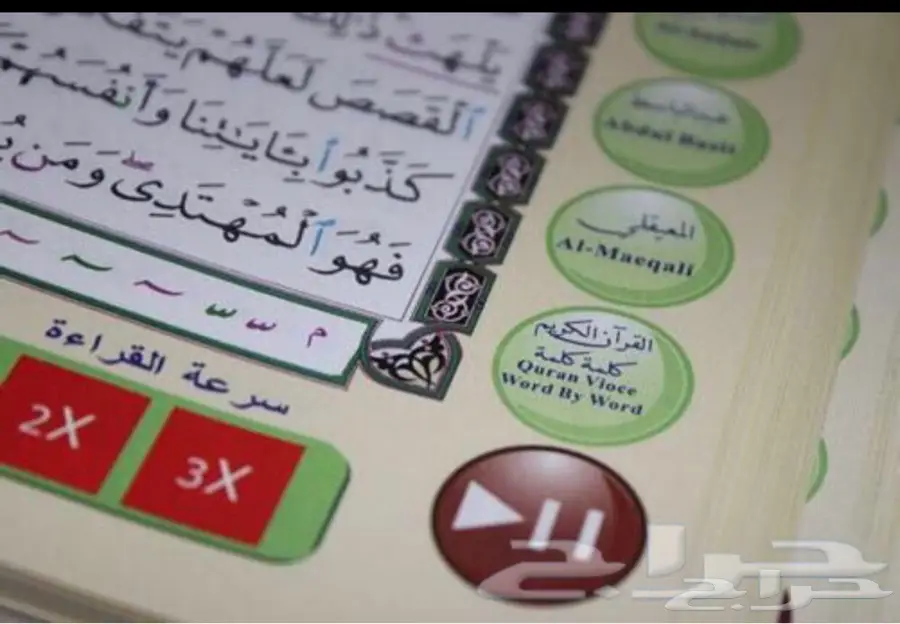 يَلْهَث ذَّٰلِكَ
ٱلْقَصَصَ لَعَلَّهُمْ
كَذَّبُوا۟ بِـَٔايَـٰتِنَا وَأَنفُسَهُمْ
فَهُوَ ٱلْمُهْتَدِى ۖ وَمَن
م
سرعة القراءة
2X
3X
عبدالباسط
Abdul Basit
المعيقلي
Al-Maeqali
القرآن الكريم
كلمة كلمة
Quran Vioce
Word By Word
حراج
حراج